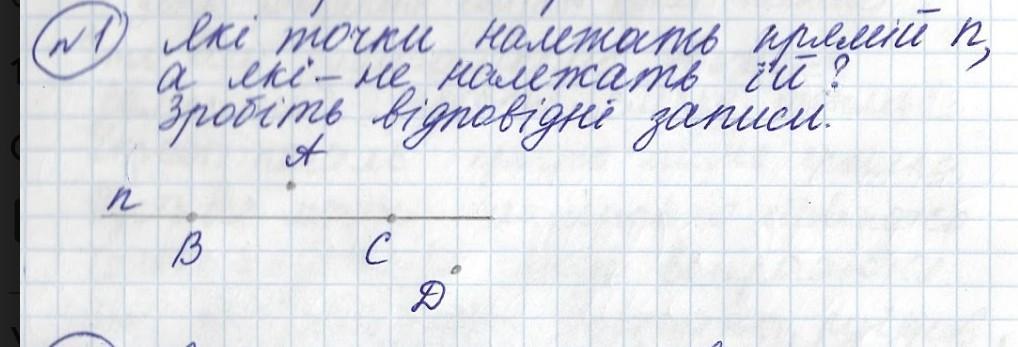 №1 Які точки належать прямій n,
а які – не належать їй?
Зробіть відповідні записи.
A
n
B C
D